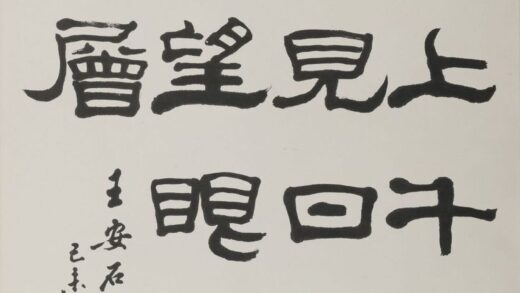 上千
見日
望眼
層
王安石
己未